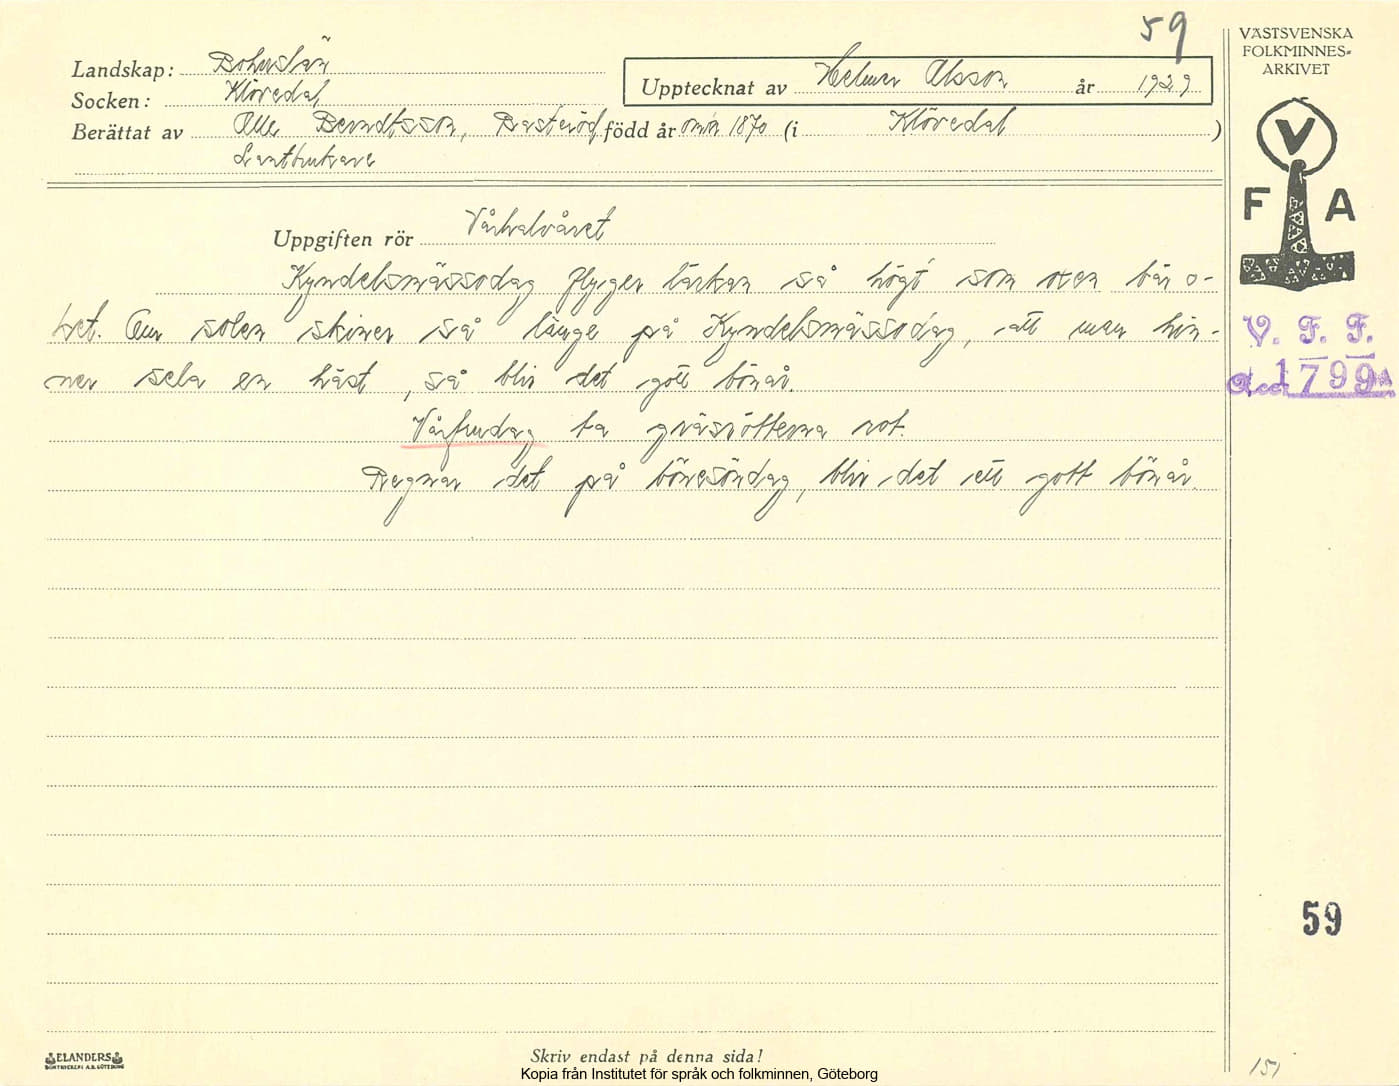 59
VÄSTSVENSKA
FOLKMINNES=
ARKIVET
Landskap: Bohuslän
Upptecknat av Helmer Olsson år 1929
Socken: Klövedal
Berättat av Olle Berndtsson, Basteröd född år omkr 1870 (i Klövedal )
Lantbrukare
V
F A
Uppgiften rör Vårhalvåret
Kyndelsmässodag flyger lärkan så högt som oxen bär o-
ket. Om solen skiner så länge på Kyndelsmässodag, att man hin-
ner sela en häst, så blir det gott bönår.
V. F. F.
Acc. 1799
Vårfrudag ta gräsrötterna rot.
Regnar det på bönesöndag, blir det ett gott bönår.
59
ELANDERS
BOKTRYCKERI A.B. GÖTEBORG
Skriv endast på denna sida!
Kopia från Institutet för språk och folkminnen, Göteborg
151